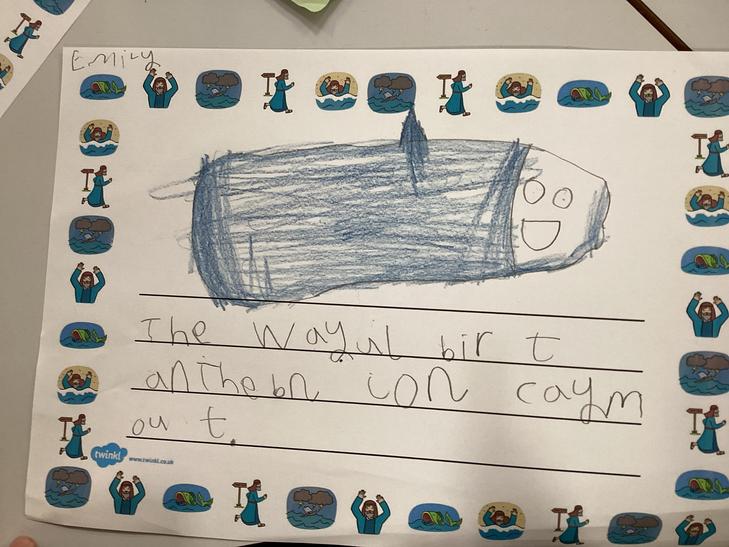 Emily
The wayul bir t
an The bn ion caym
ou t.
twinkl www.twinkl.co.uk